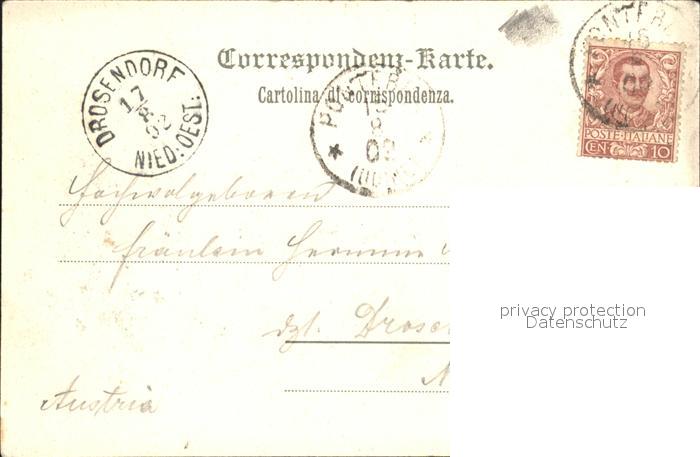 Correspondenz-Karte.
Cartolina di corrispondenza.
DROSENDORF
17
8
02
NIED: OEST:
PONTE
8
(UDI
PONTE
POSTE·ITALIANE
CEN 10
Hochwolgeboren
Fräulein Hermine
dzt. Drose
N
Austria
privacy protection
Datenschutz